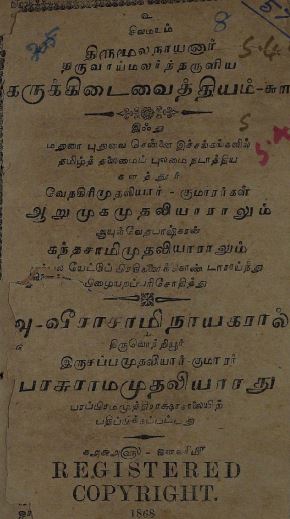 உ
சிவமயம்
திருமூலநாயனார்
திருவாய்மலர்ந்தருளிய
கருக்கிடைவைத்தியம்-
இஃது
மதுரை புதுவை சென்னை இச்சங்கங்களில்
தமிழ்த் தலைமைப் புலமை நடாத்திய
களத்தூர்
வேதகிரிமுதலியார் - குமாரர்கள்
ஆறுமுகமுதலியாராலும்
ஆயுள்வேதபாஸ்கரன்
கந்தசாமிமுதலியாராலும்
பிழையறப்பரிசோதித்து
வு-வீராசாமிநாயகரால்
திருவொற்றியூர்
இருசப்பமுதலியார்-குமாரர்
பரசுராமமுதலியாரது
பதிப்பிக்கப்பட்டது
REGISTERED
COPYRIGHT.
1868